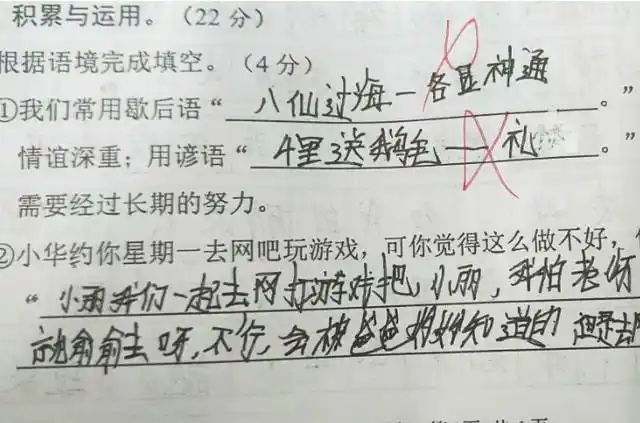 积累与运用。（22分）
根据语境完成填空。（4分）
①我们常用歇后语“八仙过海一各显神通。”
情谊深重；用谚语“4里送鹅毛一礼。”
需要经过长期的努力。
②小华约你星期一去网吧玩游戏，可你觉得这么做不好，
“小丽我们一起去网打游戏把，小丽，我怕老师
就偷偷去呀，不行，会被爸爸妈妈知道的